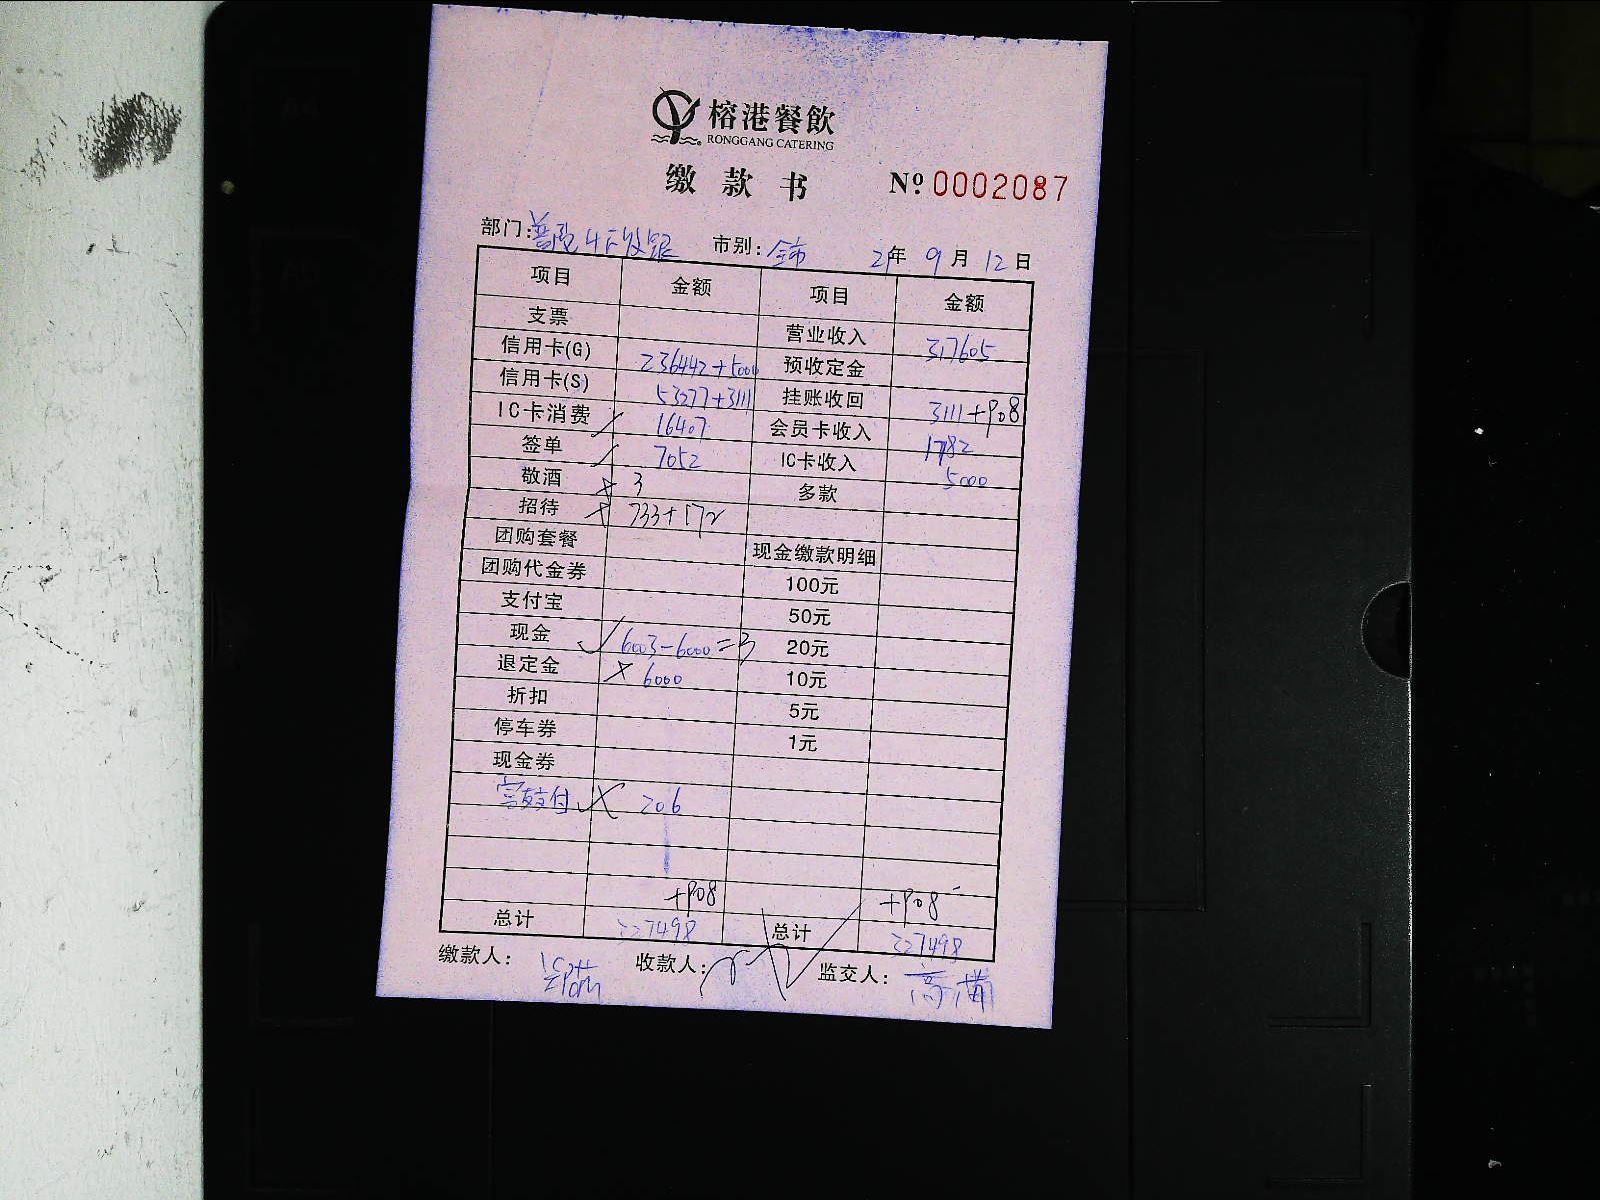 榕港餐飲
RONGGANG CATERING
缴款书 Nº 0002087
部门: 普陀4F收银 市别: 全市 21年 9月 12日
项目 金额 项目 金额
支票 营业收入 317605
信用卡(G) 236442+5000 预收定金
信用卡(S) 53277+3111 挂账收回 3111+908
IC卡消费 16407 会员卡收入 1782
签单 7052 IC卡收入 5000
敬酒 × 3 多款
招待 × 733+172
团购套餐 现金缴款明细
团购代金券 100元
支付宝 50元
现金 ✓ 6003-6000=3 20元
退定金 × 6000 10元
折扣 5元
停车券 1元
现金券
206
+908 +908
总计 327498 总计 327498
缴款人: 收款人: 监交人: